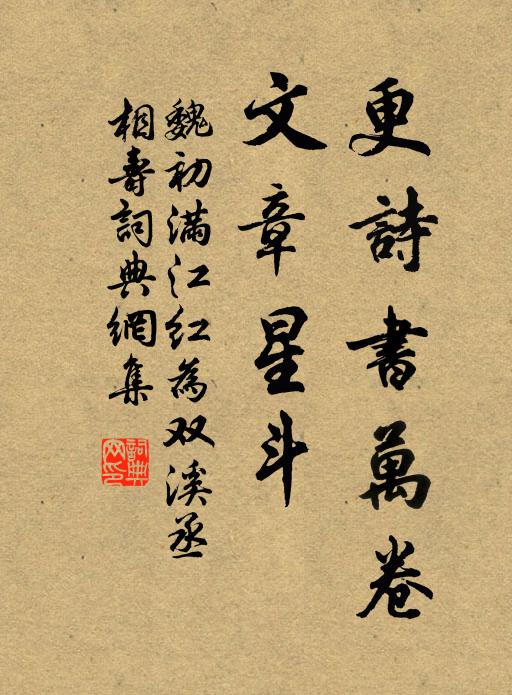 更詩書萬卷
文章星斗
魏初滿江紅為双溪丞
相壽詞典網集
詞典网印